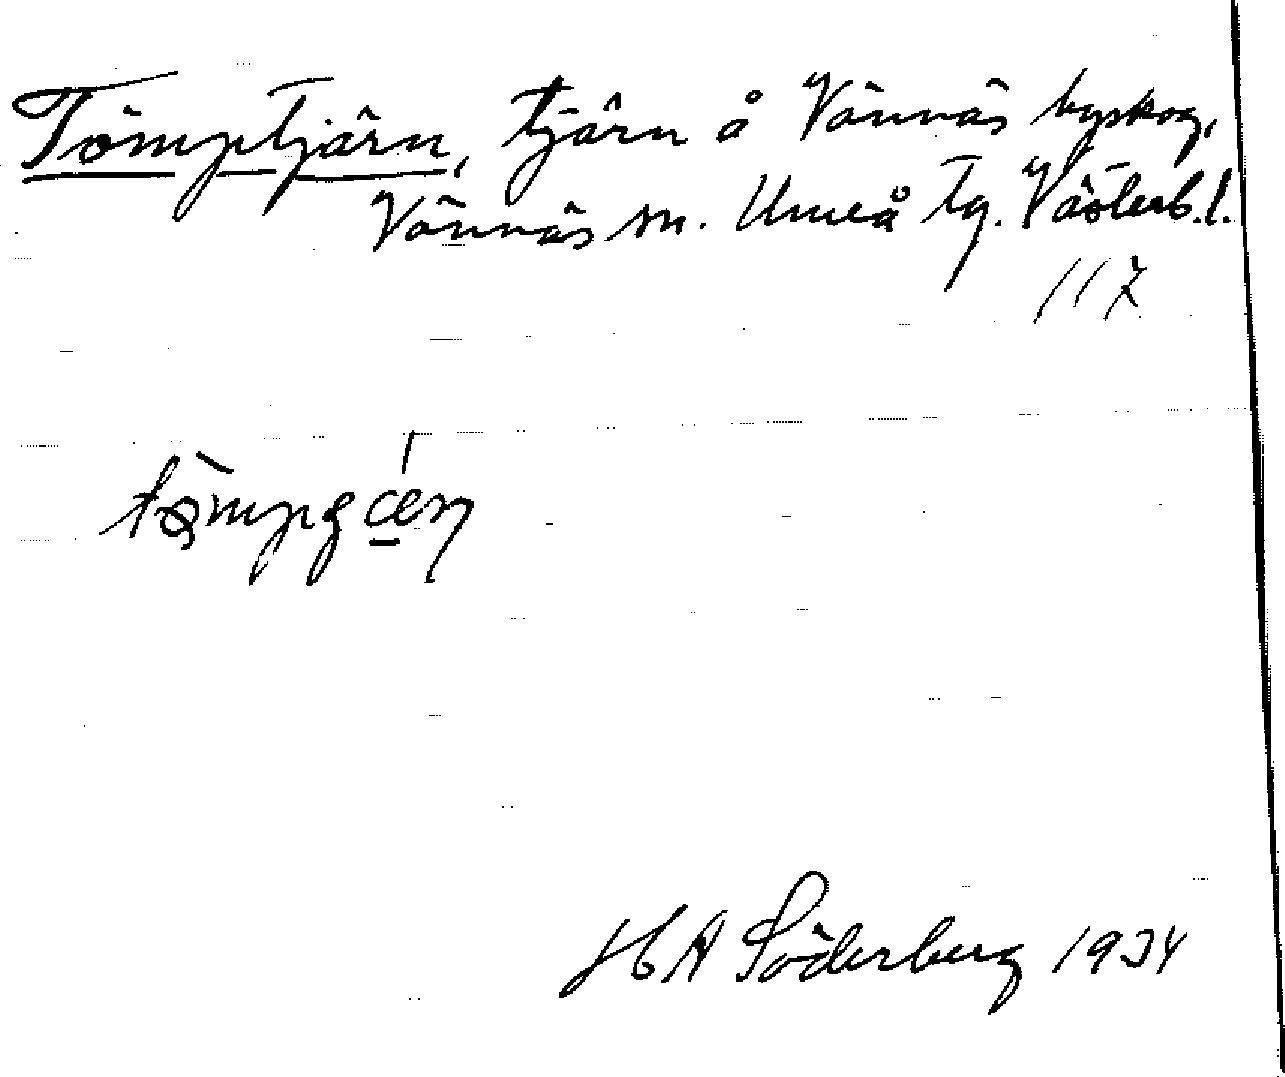 Tömptjärn, tjärn å Vännäs byskog,
Vännäs sn. Umeå tg. Västerb.l.
117
H A Söderberg 1934